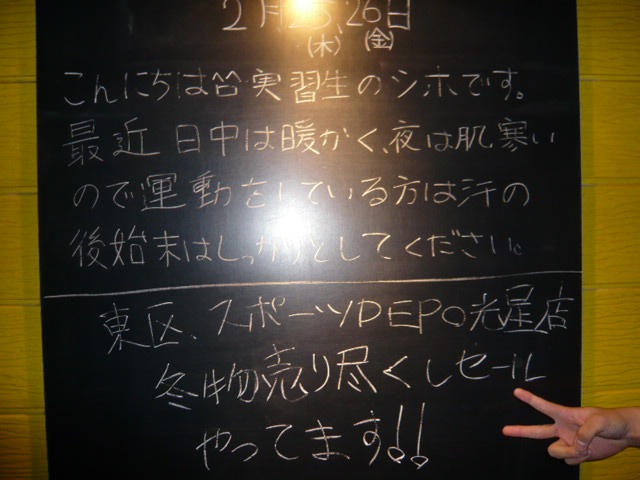 2月25,26日
(木) (金)
こんにちは 実習生のシホです。
最近日中は暖かく、夜は肌寒い
ので運動をしている方は汗の
後始末はしっかりとしてください。
東区、スポーツDEPO光星店
冬物売り尽くしセール
やってます!!